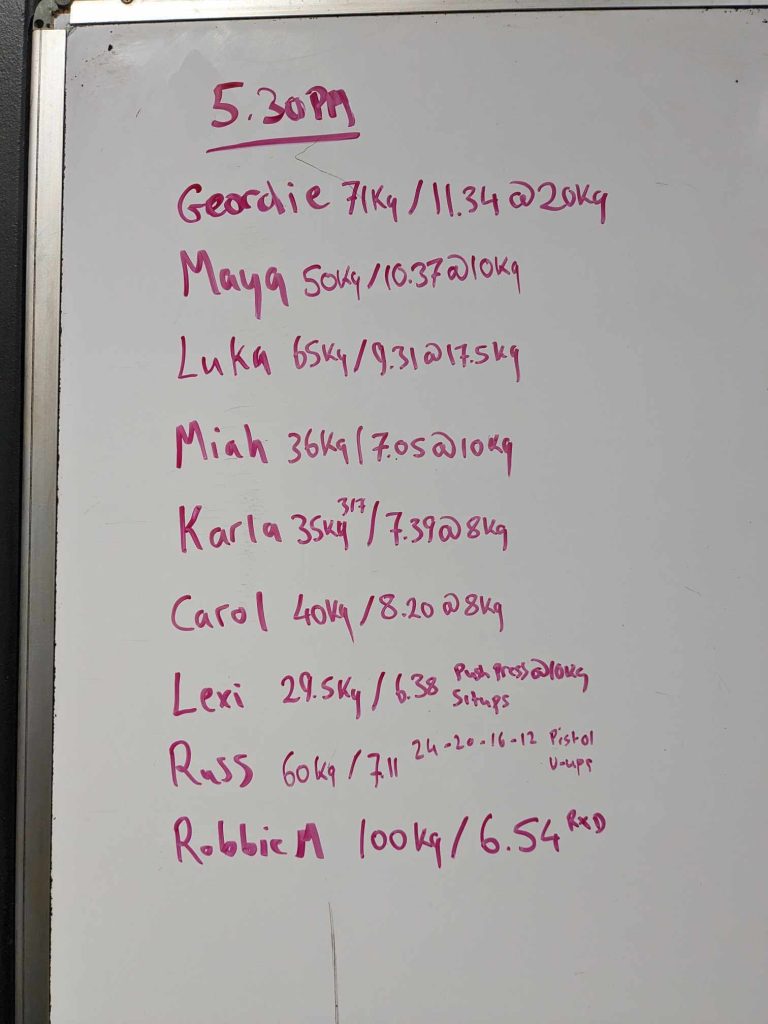 5.30PM
Geordie 71Kg / 11.34 @ 20Kg
Maya 50Kg / 10.37 @ 10Kg
Luka 65Kg / 9.31 @ 17.5Kg
Miah 36Kg / 7.05 @ 10Kg
Karla 35Kg 317 / 7.39 @ 8Kg
Carol 40Kg / 8.20 @ 8Kg
Lexi 29.5Kg / 6.38 Push Press @ 10Kg
Situps
Russ 60Kg / 7.11 24-20-16-12 Pistol
V-ups
Robbie M 100Kg / 6.54 RxD